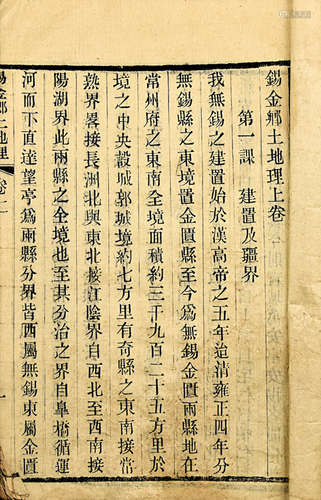 錫金鄉土地理上卷
第一課 建置及疆界
我無錫之建置始於漢高帝之五年迨清雍正四年分
無錫縣之東境置金匱縣至今爲無錫金匱兩縣地在
常州府之東南全境面積約三千九百二十五方里於
境之中央設城郭城境約七方里有奇縣之東南接常
熟界畧接長洲北與東北接江陰界自西北至西南接
陽湖界此兩縣之全境也至其分治之界自皋橋循運
河而下直達望亭爲兩縣分界皆西屬無錫東屬金匱